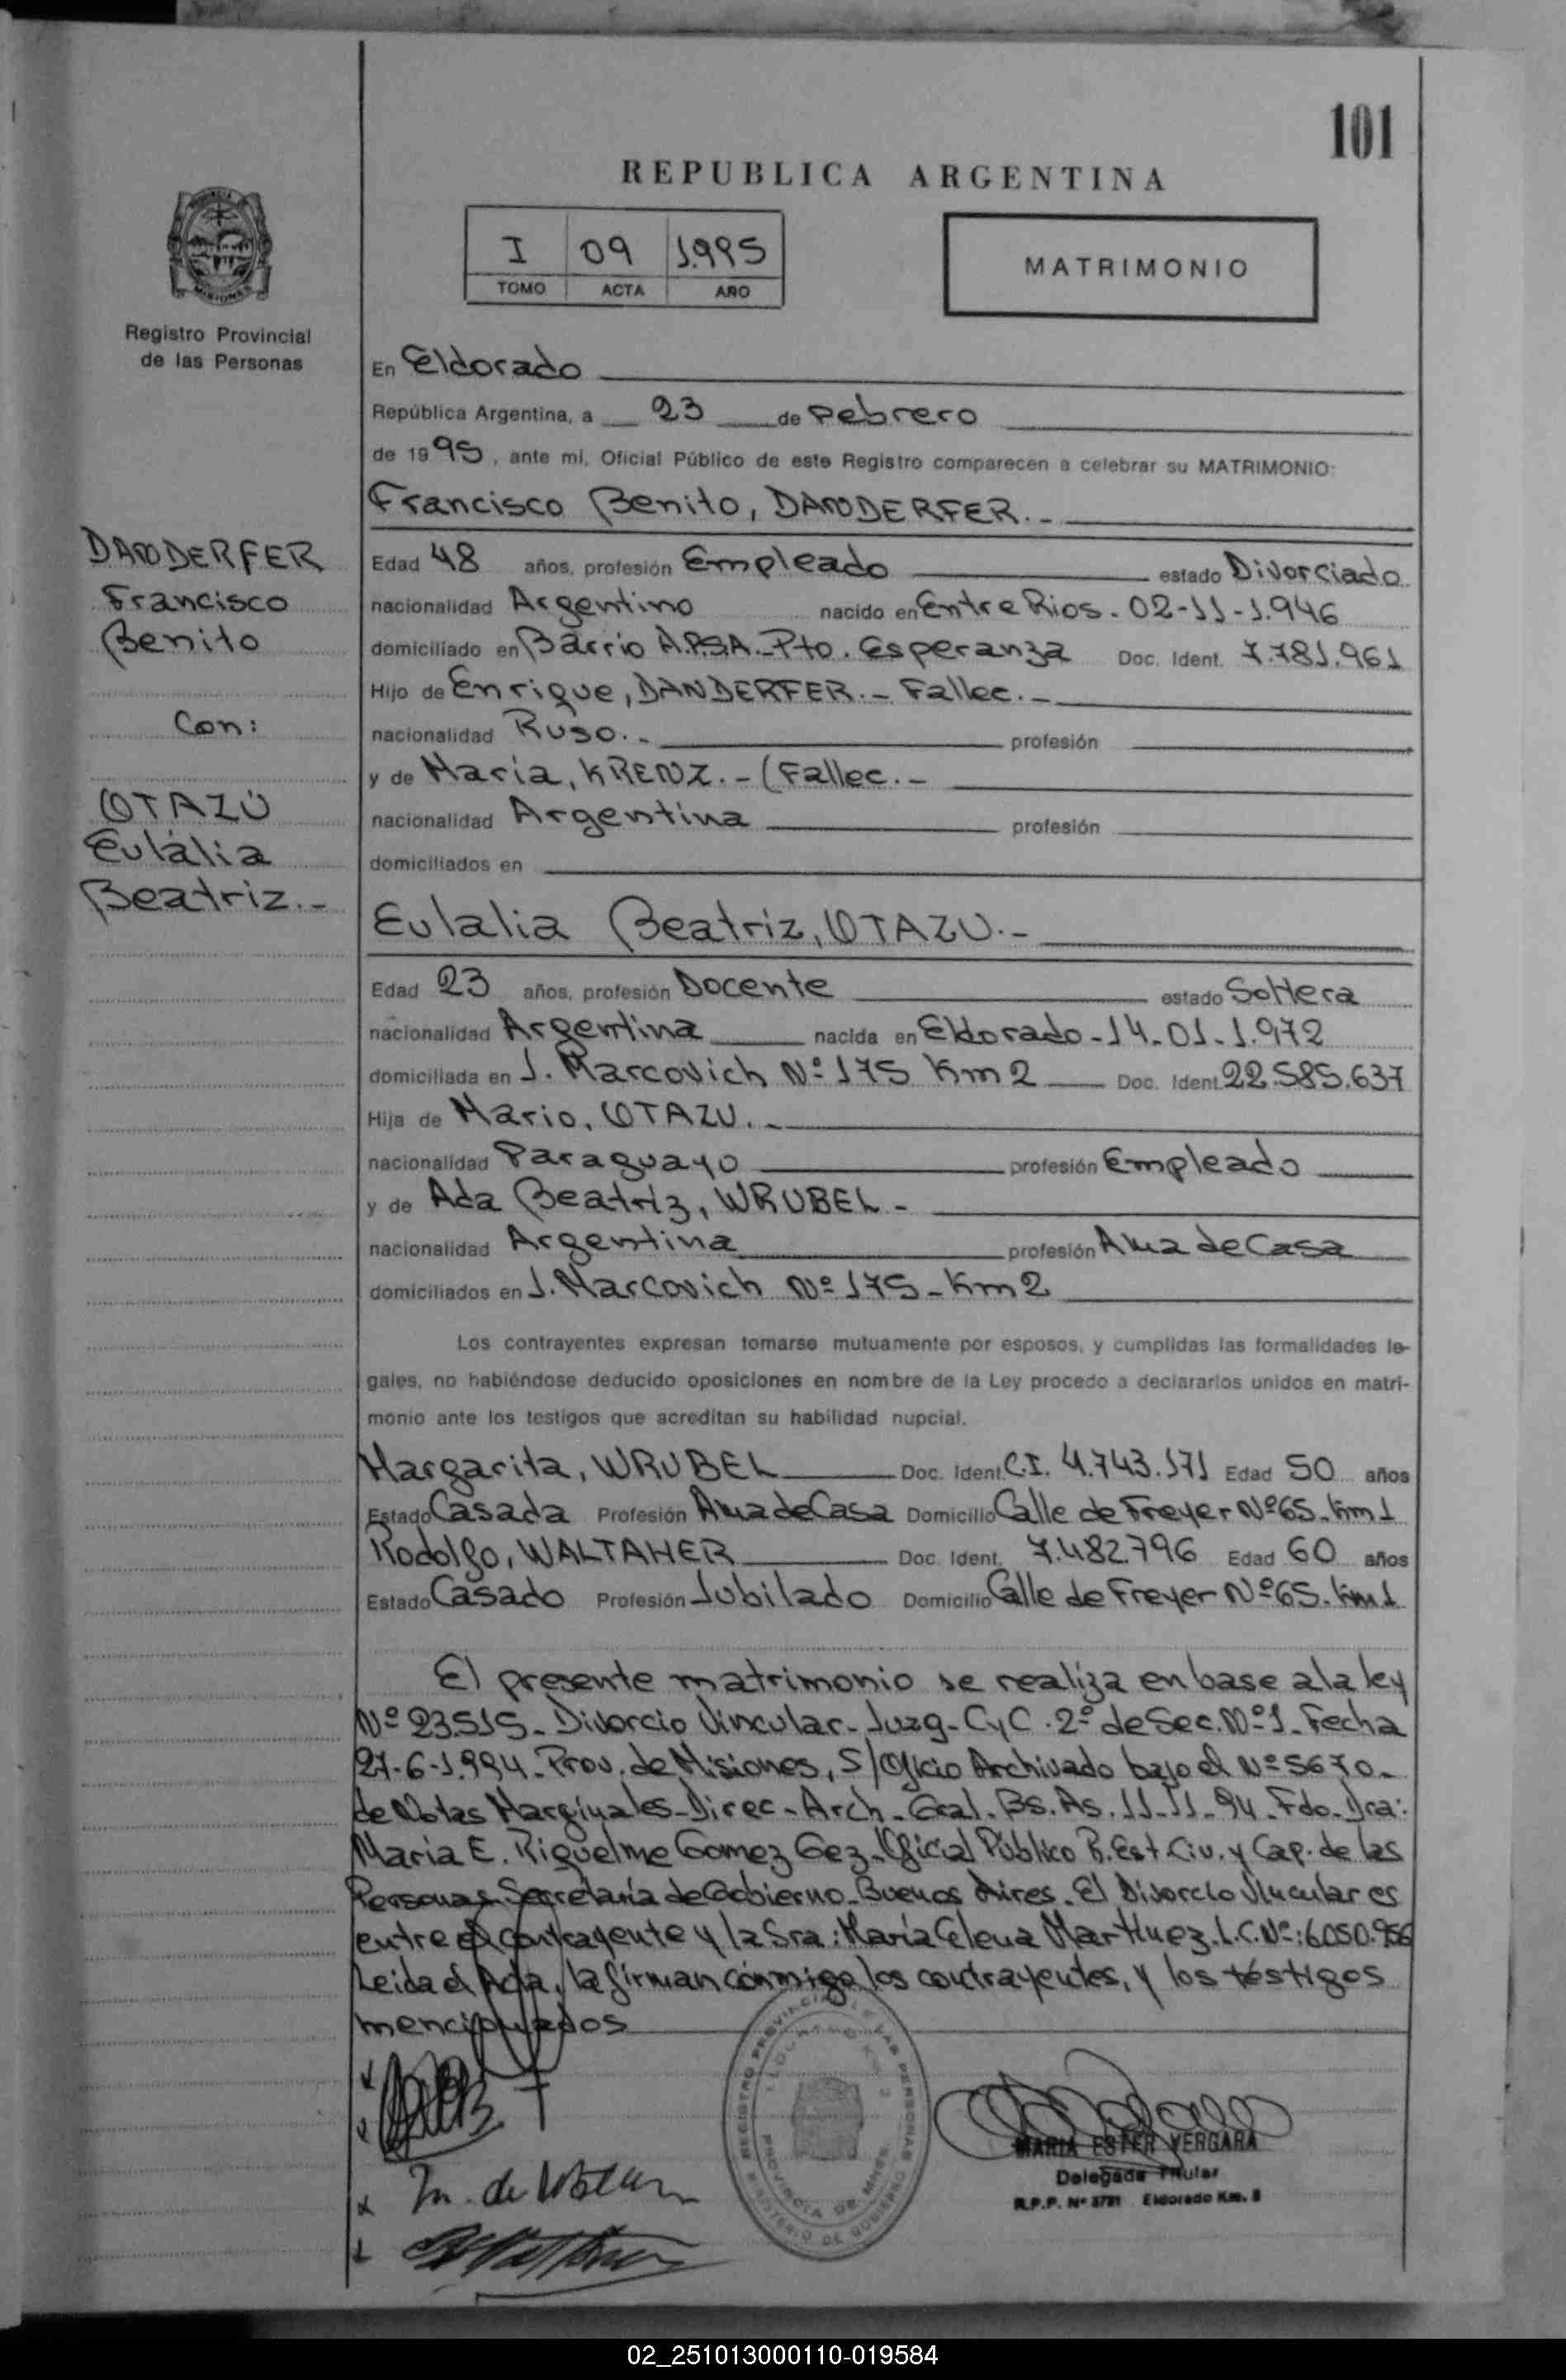 101
REPUBLICA ARGENTINA
I 09 1.995
TOMO ACTA AÑO
MATRIMONIO
MISIONES
Registro Provincial
de las Personas
En Eldorado
República Argentina, a 23 de Febrero
de 1995, ante mí, Oficial Público de este Registro comparecen a celebrar su MATRIMONIO:
Francisco Benito, DANDERFER.-
DANDERFER
Francisco
Benito
Con:
OTAZÚ
Eulalia
Beatriz.-
Edad 48 años, profesión Empleado estado Divorciado
nacionalidad Argentino nacido en Entre Rios. 02-11-1.946
domiciliado en Barrio A.P.S.A.-Pto. Esperanza Doc. Ident. 7.781.961
Hijo de Enrique, DANDERFER.- Fallec.-
nacionalidad Ruso.- profesión
y de María, KRENZ.-(Fallec.-
nacionalidad Argentina profesión
domiciliados en
Eulalia Beatriz, OTAZU.-
Edad 23 años, profesión Docente estado Soltera
nacionalidad Argentina nacida en Eldorado-14-01-1.972
domiciliada en J. Marcovich Nº 175 Km 2 Doc. Ident. 22.585.637
Hija de Mario, OTAZU.-
nacionalidad Paraguayo profesión Empleado
y de Ada Beatriz, WRUBEL-
nacionalidad Argentina profesión Ama de Casa
domiciliados en J. Marcovich Nº 175-Km2
Los contrayentes expresan tomarse mutuamente por esposos, y cumplidas las formalidades le-
gales, no habiéndose deducido oposiciones en nombre de la Ley procedo a declararlos unidos en matri-
monio ante los testigos que acreditan su habilidad nupcial.
Margarita, WRUBEL Doc. Ident. C.I. 4.743.171 Edad 50 años
Estado Casada Profesión Ama de Casa Domicilio Calle de Freyer Nº65-Km1
Rodolfo, WALTAHER Doc. Ident. 7.482.796 Edad 60 años
Estado Casado Profesión Jubilado Domicilio Calle de Freyer Nº65-Km1
El presente matrimonio se realiza en base a la ley
Nº 23.515-Divorcio Vincular-Juzg-CyC.2º de Sec.Nº1-Fecha
27-6-1.994-Prov. de Misiones, S/Oficio Archivado bajo el Nº5670-
de Notas Marginales-Direc-Arch-Gral-Bs.As.11-11-94-Fdo-Dra:
María E. Riquelme Gomez Gez-Oficial Público R.Est.Civ. y Cap. de las
Personas Secretaría de Gobierno-Buenos Aires. El Divorcio Vincular es
entre el contrayente y la Sra: María Elena Martinez-L.C.Nº:6050.956
Leida el Acta, la firman conmigo los contrayentes, y los testigos
mencionados
REGISTRO PROVINCIAL DE LAS PERSONAS
PROVINCIA DE MNES.
MINISTERIO DE GOBIERNO
MARIA ESTER VERGARA
Delegada Titular
R.P.P. Nº 3731 Eldorado Km. 2
02_251013000110-019584